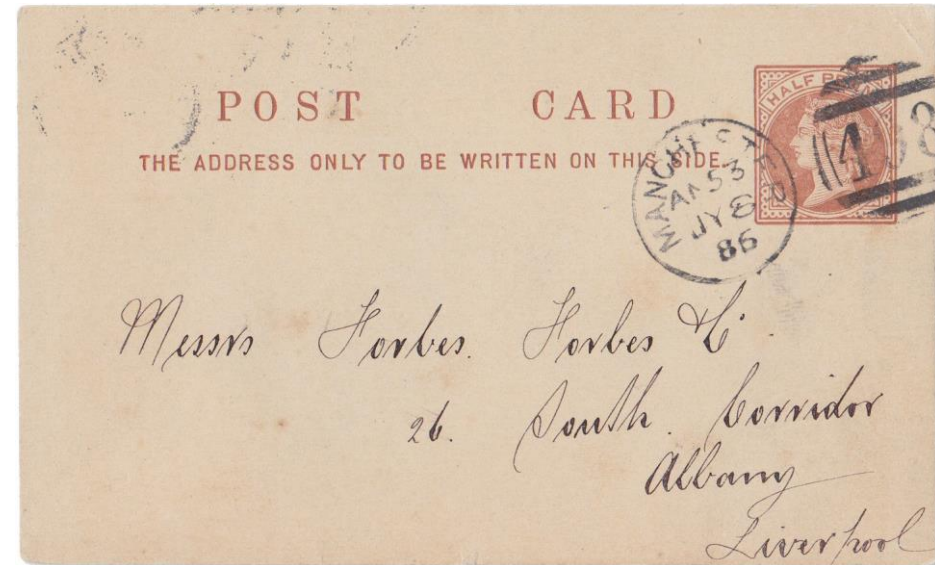 POST CARD
HALF PENNY
THE ADDRESS ONLY TO BE WRITTEN ON THIS SIDE.
MANCHESTER
53
JY 8
86
498
Messrs Forbes. Forbes & Co.
26. South. Corridor
Albany
Liverpool